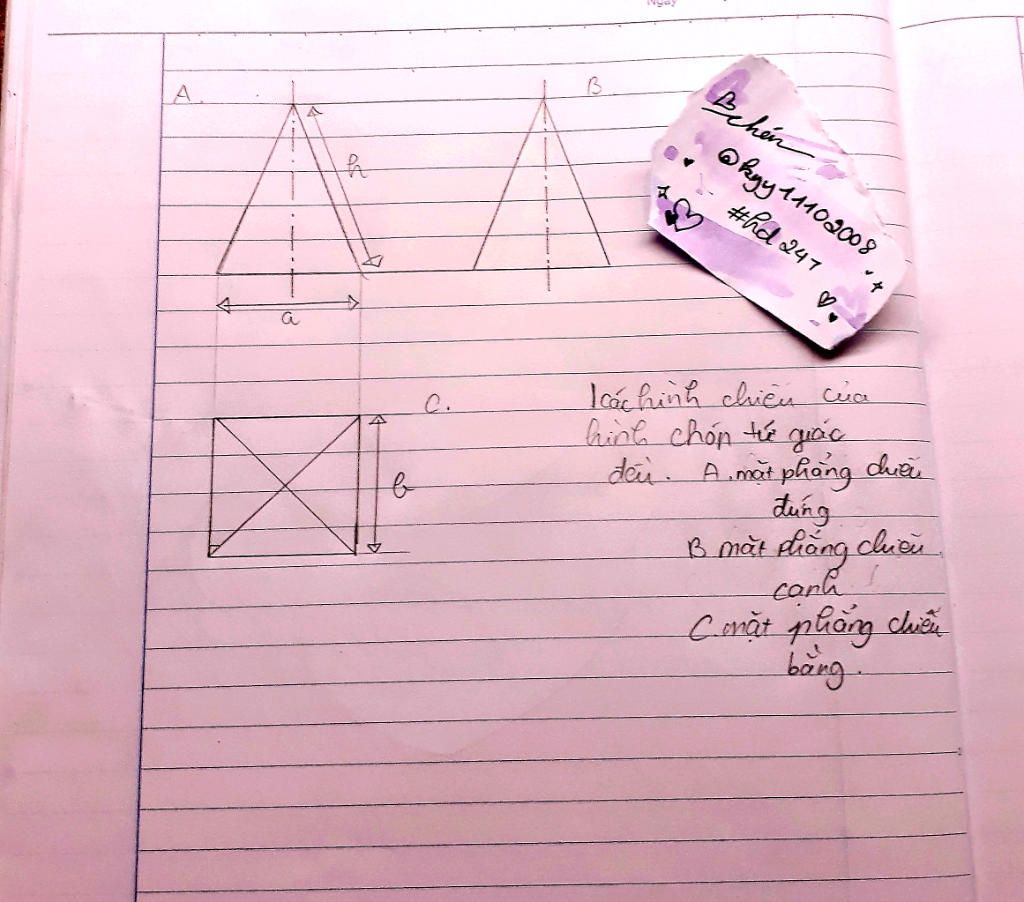 Ngày
A.
B
h
a
C.
b
B chén
@kyy11102008
#hd247
1 các hình chiếu của
hình chóp tứ giác
đều. A. mặt phẳng chiếu
đứng
B mặt phẳng chiếu
cạnh
C. mặt phẳng chiếu
bằng.